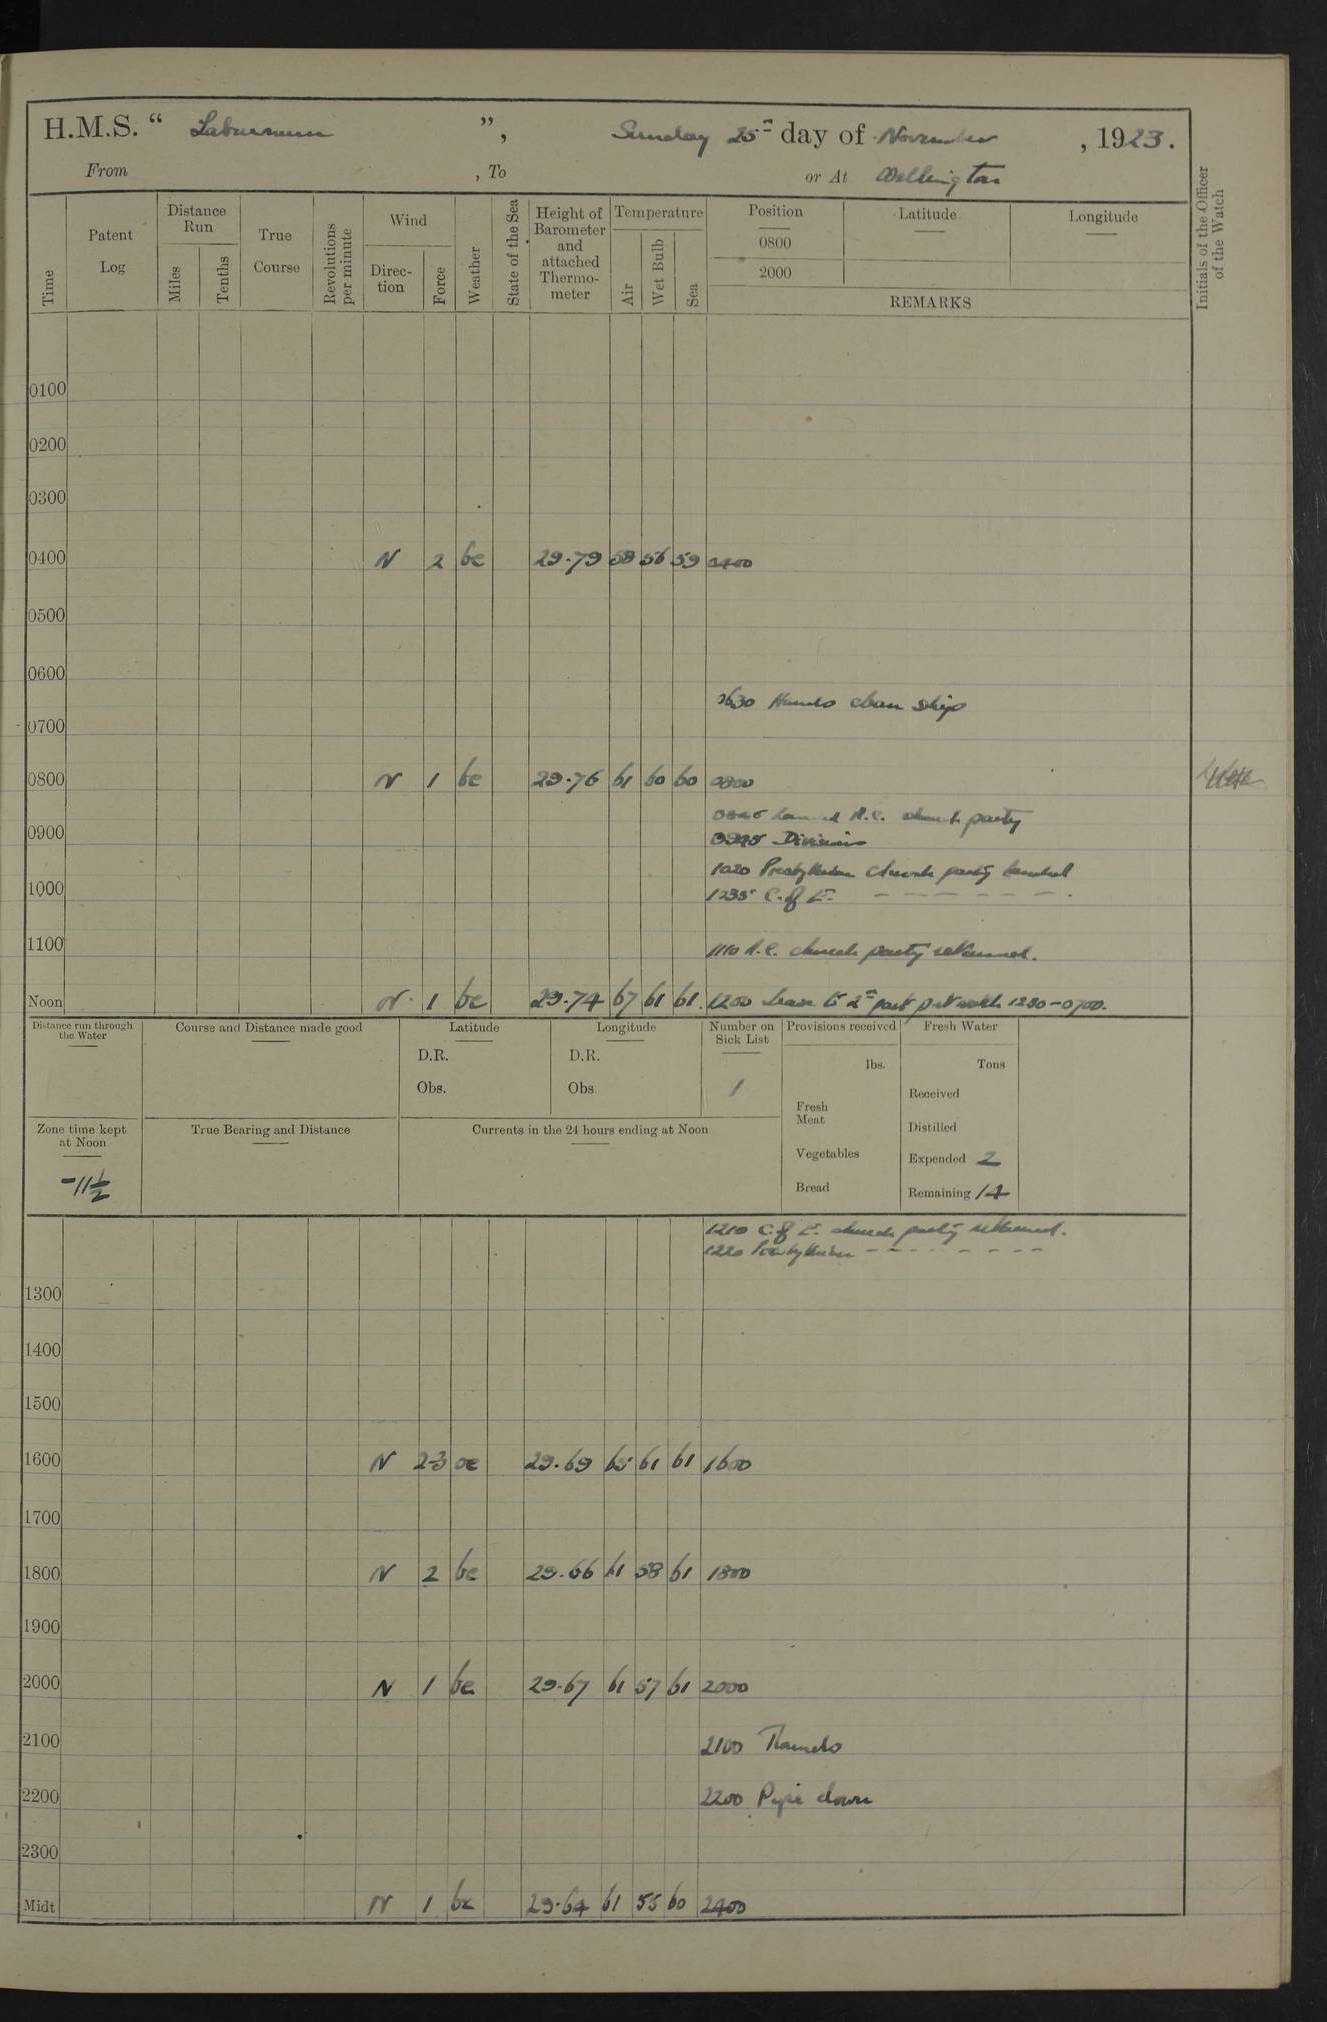 H.M.S. “ Laburnum ”, Sunday 25th day of November, 1923.
From , To or At Wellington
Time
Patent Log
Distance Run
Miles
Tenths
True Course
Revolutions per minute
Wind
Direction
Force
Weather
State of the Sea
Height of Barometer and attached Thermometer
Temperature
Air
Wet Bulb
Sea
Position Latitude Longitude
0800
2000
REMARKS
Initials of the Officer of the Watch
0100
0200
0300
0400 N 2 bc 29.79 58 56 59 0400
0500
0600
0630 Hands clean ship
0700
0800 N 1 bc 29.76 61 60 60 0800
R.C. church party
0900
0945 Divisions
1020 Presbyterian church party landed
1000
C. of E. - - - - - - -
1100
1110 R.C. church party returned.
Noon N. 1 bc 29.74 67 61 61. 1200 Leave to 2nd part port watch 1230-0700.
Distance run through the Water
Course and Distance made good
Latitude
D.R.
Obs.
Longitude
D.R.
Obs
Number on Sick List
1
Provisions received
lbs.
Fresh Meat
Vegetables
Bread
Fresh Water
Tons
Received
Distilled
Expended 2
Remaining 14
Zone time kept at Noon
-11½
True Bearing and Distance
Currents in the 24 hours ending at Noon
1210 C. of E. church party returned.
1220 Presbyterian - - - - - - - -
1300
1400
1500
1600 N 2-3 oc 29.69 65 61 61 1600
1700
1800 N 2 bc 29.66 61 58 61 1800
1900
2000 N 1 bc 29.67 61 57 61 2000
2100 2100 Rounds
2200 2200 Pipe down
2300
Midt N 1 bc 29.64 61 55 60 2400